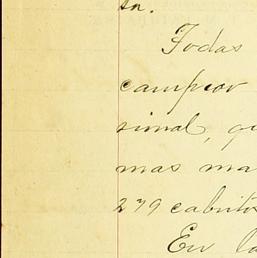 ta.
Todas
campior
simal, qu
mas ma
279 cabrito
Eu la